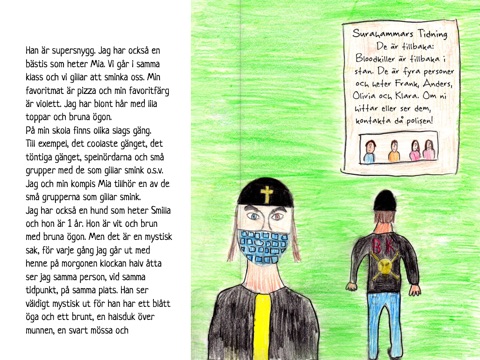 Han är supersnygg. Jag har också en
bästis som heter Mia. Vi går i samma
klass och vi gillar att sminka oss. Min
favoritmat är pizza och min favoritfärg
är violett. Jag har blont hår med lila
toppar och bruna ögon.
På min skola finns olika slags gäng.
Till exempel, det coolaste gänget, det
töntiga gänget, spelnördarna och små
grupper med de som gillar smink o.s.v.
Jag och min kompis Mia tillhör en av de
små grupperna som gillar smink.
Jag har också en hund som heter Smilla
och hon är 1 år. Hon är vit och brun
med bruna ögon. Men det är en mystisk
sak, för varje gång jag går ut med
henne på morgonen klockan halv åtta
ser jag samma person, vid samma
tidpunkt, på samma plats. Han ser
väldigt mystisk ut för han har ett blått
öga och ett brunt, en halsduk över
munnen, en svart mössa och
Surahammars Tidning
De är tillbaka:
Bloodkiller är tillbaka i
stan. De är fyra personer
och heter Frank, Anders,
Olivia och Klara. Om ni
hittar eller ser dem,
kontakta då polisen!